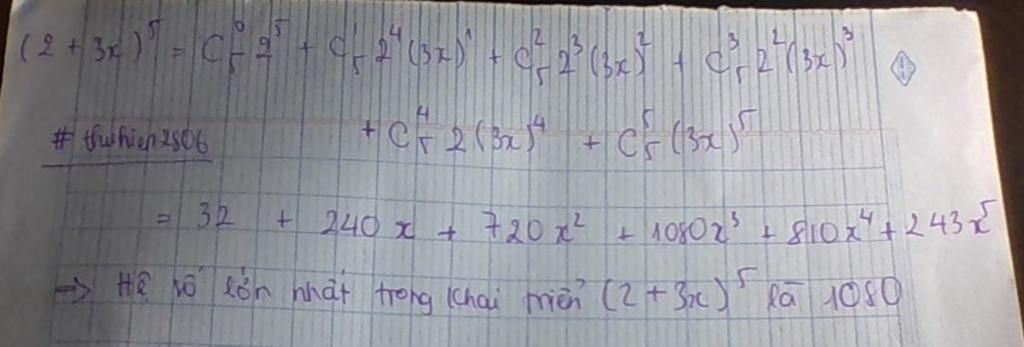 (2 + 3x)⁵ = C₅⁰ 2⁵ + C₅¹ 2⁴ (3x)¹ + C₅² 2³ (3x)² + C₅³ 2² (3x)³
+ C₅⁴ 2 (3x)⁴ + C₅⁵ (3x)⁵
# thuhien2806
= 32 + 240x + 720x² + 1080x³ + 810x⁴ + 243x⁵
=> Hệ số lớn nhất trong khai triển (2 + 3x)⁵ là 1080